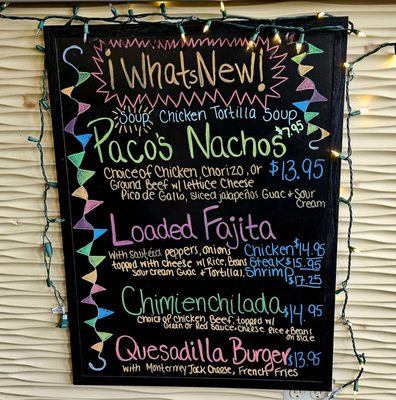 ¡WhatsNew!
Soup Chicken Tortilla Soup
$7.95
Paco's Nachos
Choice of Chicken, Chorizo, or $13.95
Ground Beef w/ lettuce Cheese
Pico de Gallo, sliced jalapeños Guac + Sour
Cream
Loaded Fajita
With sautéed peppers, onions Chicken $14.95
topped with cheese w/ Rice, Beans Steak $15.95
Sour cream Guac + Tortillas, Shrimp
$17.25
Chimienchilada $14.95
Choice of Chicken, Beef, topped w/
Green or Red Sauce, Cheese Rice + Beans
on side
Quesadilla Burger $13.95
With Monterrey Jack Cheese, French Fries